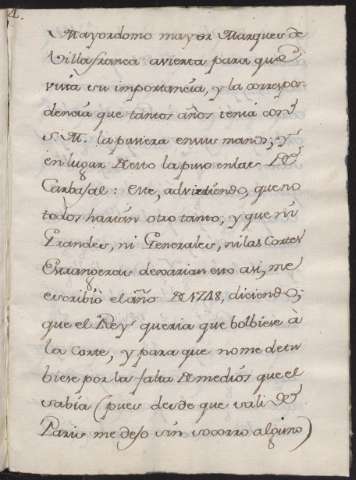 Mayordomo mayor Marques de
Villafranca avierta para que
viera su importancia, y la correspon
dencia que tantos años tenia con
S. M. la pusiera en sus manos; y
en lugar de esto la puso en las de
Carbajal: Este, advirtiendo, que no
todos harian otro tanto, y que ni
Grandes, ni Generales, ni las Cortes
Extrangeras dexarian esto asi, me
escribió el año de 1748, diciendo;
que el Rey queria que bolbiese à
la Corte, y para que no me detu
biese por la falta de medios que el
sabía (pues desde que sali de
Paris me dejo sin socorro alguno)